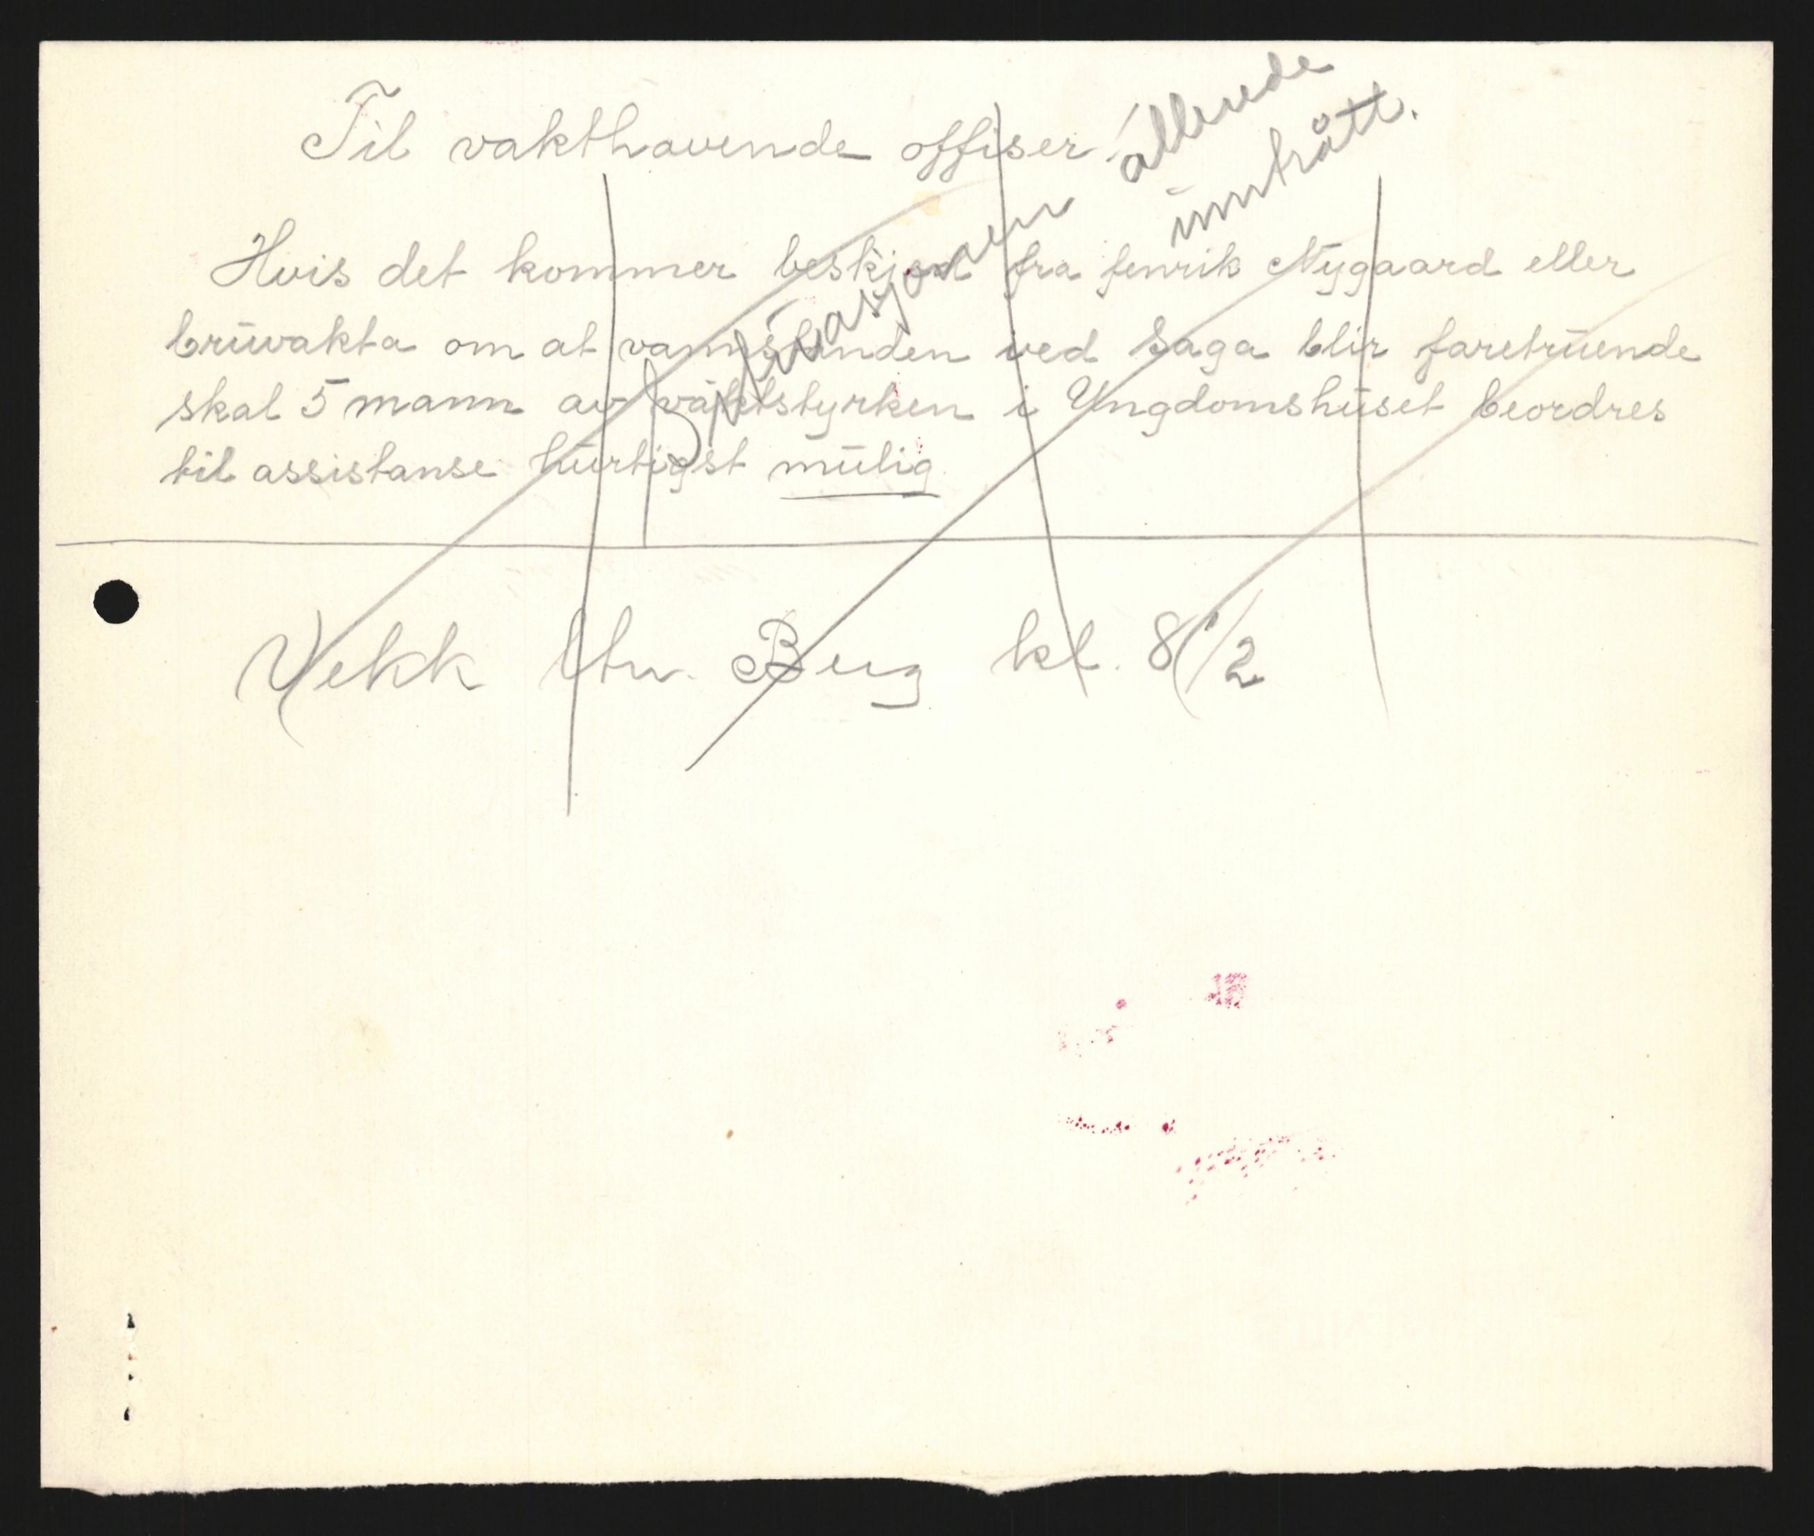 Til vakthavende offiser!
Hvis det kommer beskjed fra fenrik Nygaard eller
bruvakta om at vannstanden ved Saga blir faretruende
skal 5 mann av vaktstyrken i Ungdomshuset beordres
til assistanse hurtigst mulig
Situasjonen allerede
inntrått.
Vekk Berg kl. 8 1/2